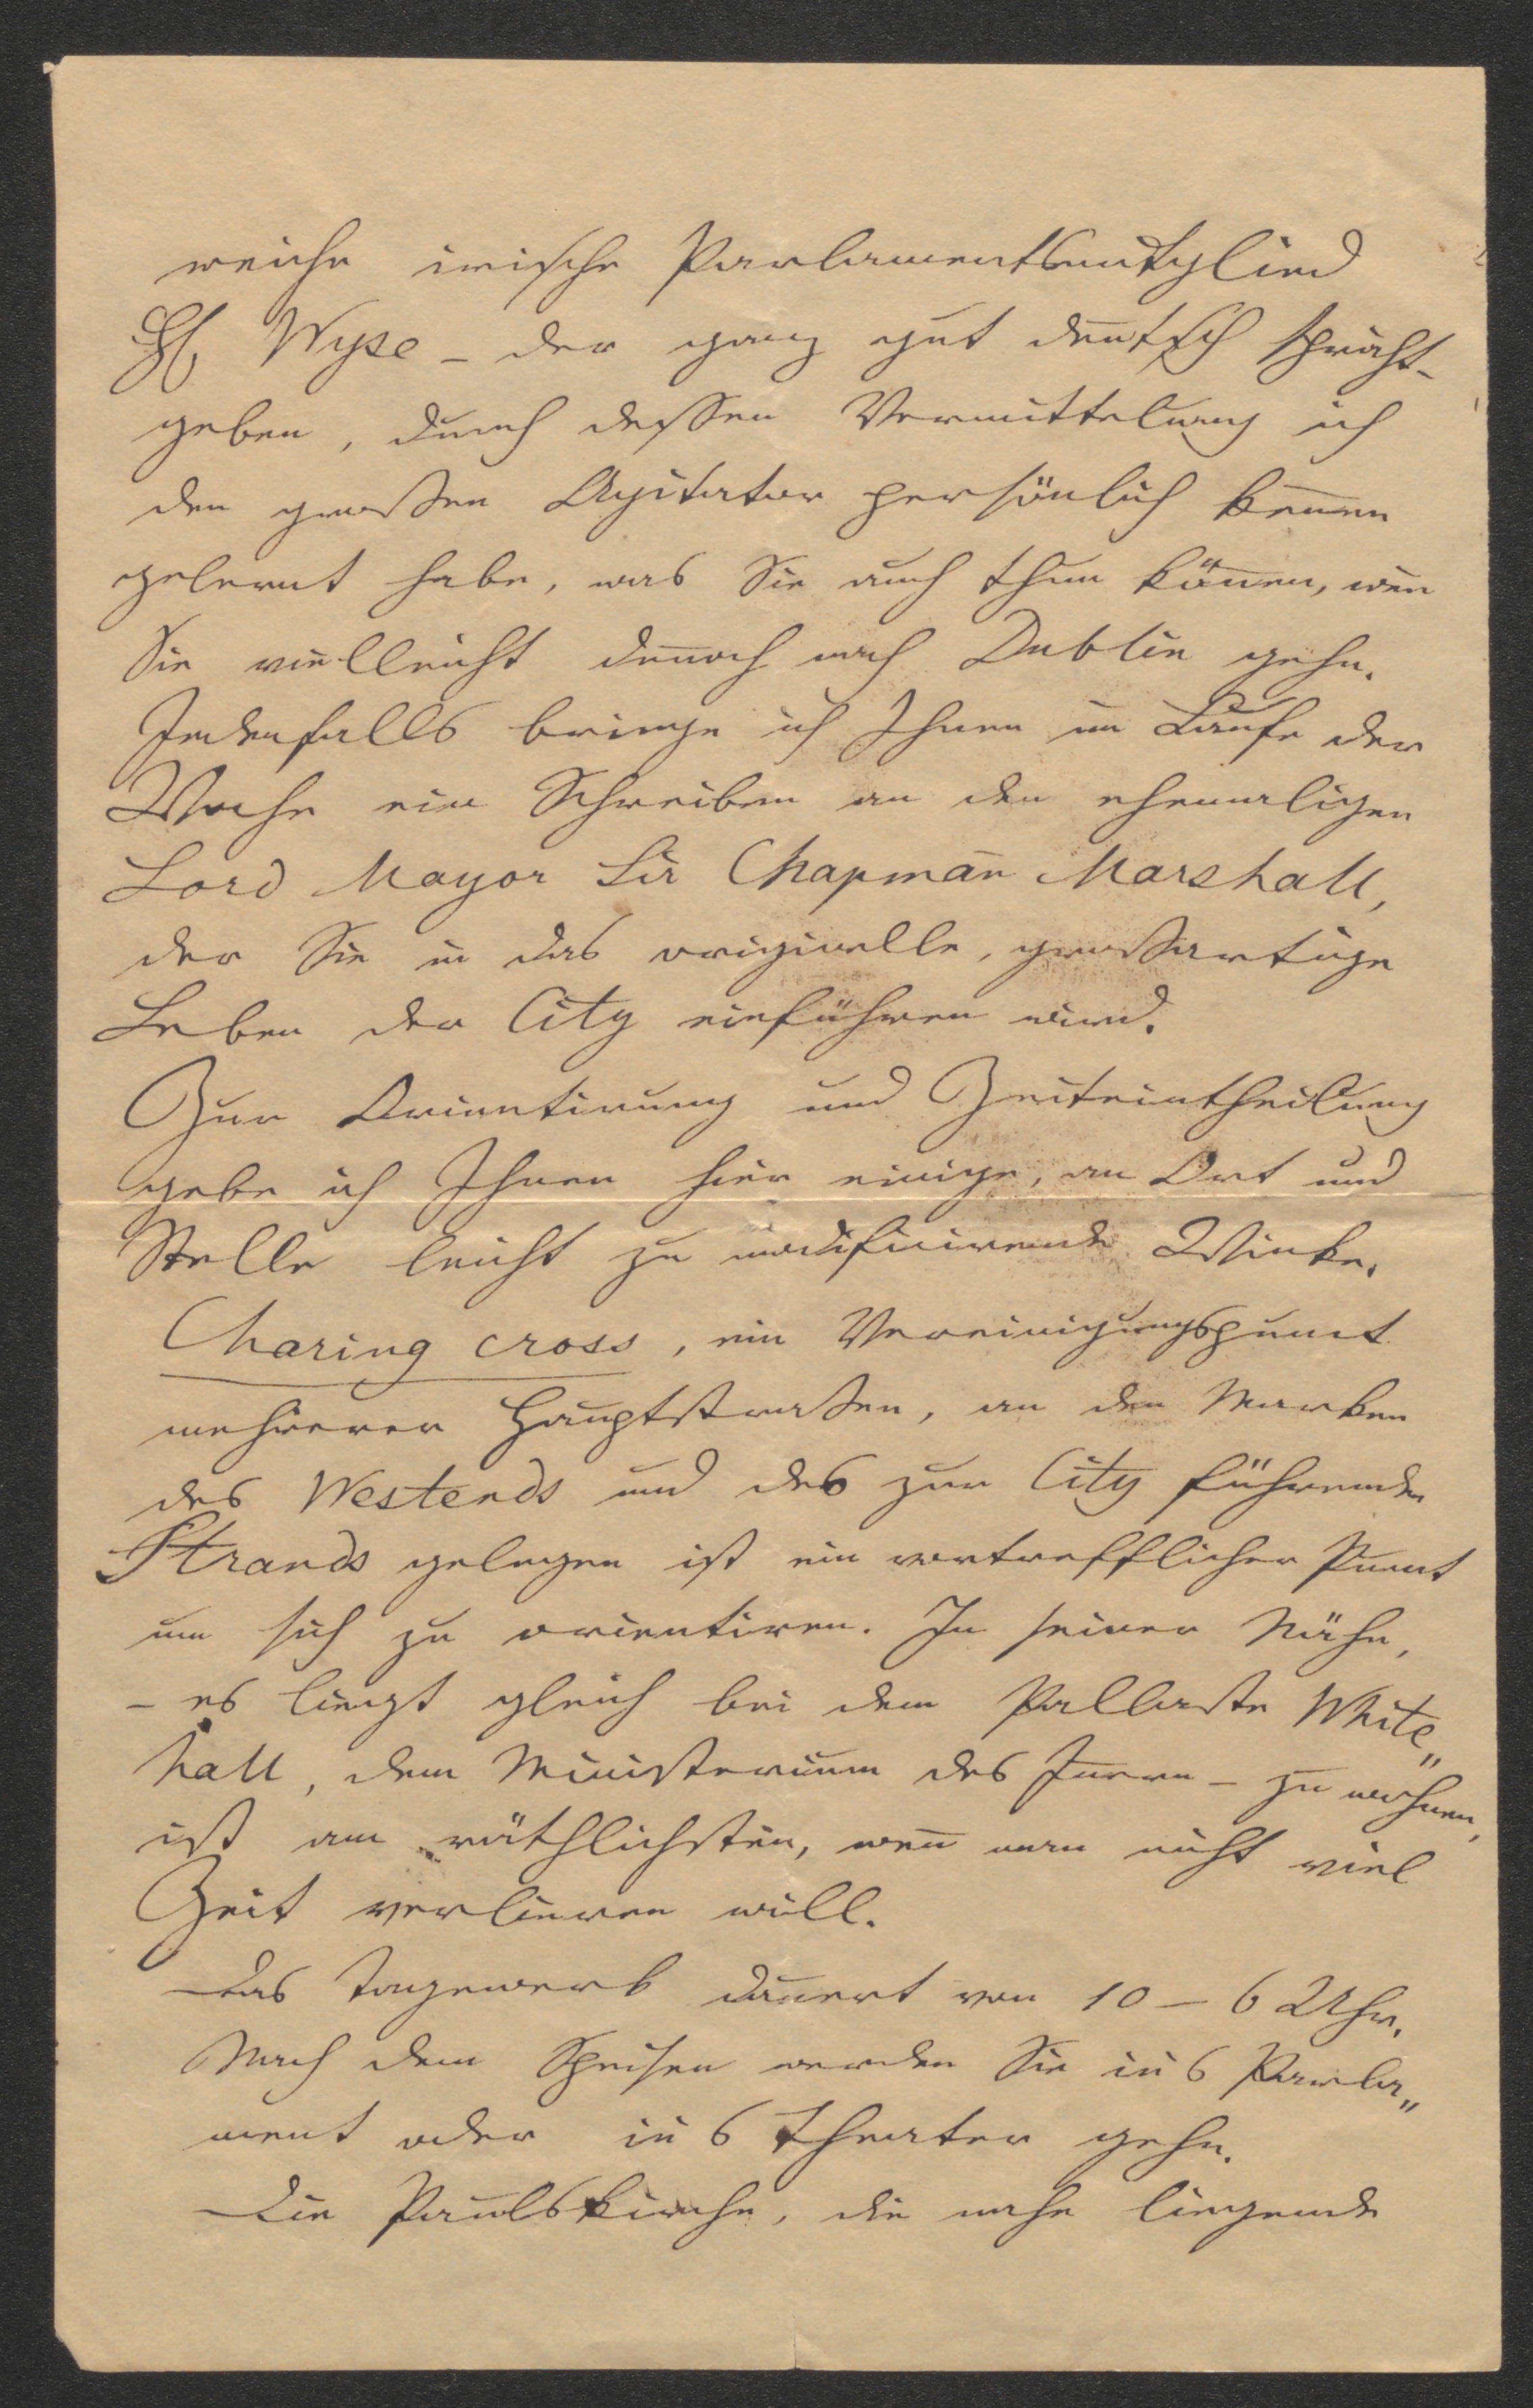 reiche irische Parlamentsmitglied
H. Wyse – der ganz gut deutsch spricht –
geben, durch dessen Vermittelung ich
den großen Agitator persönlich kennen
gelernt habe, was Sie auch thun können, wen̄
Sie vielleicht den̄och nach Dublin gehn.
Jedenfalls bringe ich Ihnen im Laufe der
Woche ein Schreiben an den ehemaligen
Lord Mayor Sir Chapman̄ Marshall,
der Sie in das originelle, großartige
Leben der City einführen wird.
Zur Orientirung und Zeiteintheilung
gebe ich Ihnen hier einige, an Ort und
Stelle leicht zu modificirende Winke.
Charing cross, ein Vereinigungspunct
mehrerer Hauptstraßen, an den Marken
des Westends und des zur City führenden
Strands gelegen ist ein vortrefflicher Punct
um sich zu orientiren. In seiner Nähe,
– es liegt gleich bei dem Pallaste White„
hall, dem Ministerium des Innern – zu wohnen,
ist am räthlichsten, wen̄ man nicht viel
Zeit verlieren will.
Das Tagewerk dauert von 10 – 6 Uhr.
Nach dem Speisen werden Sie ins Parla„
ment oder ins Theater gehn.
Die Paulskirche, die nahe liegende